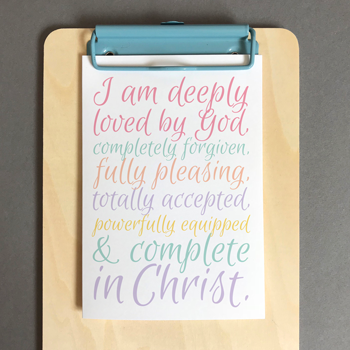 I am deeply
loved by God,
completely forgiven,
fully pleasing,
totally accepted,
powerfully equipped
& complete
in Christ.